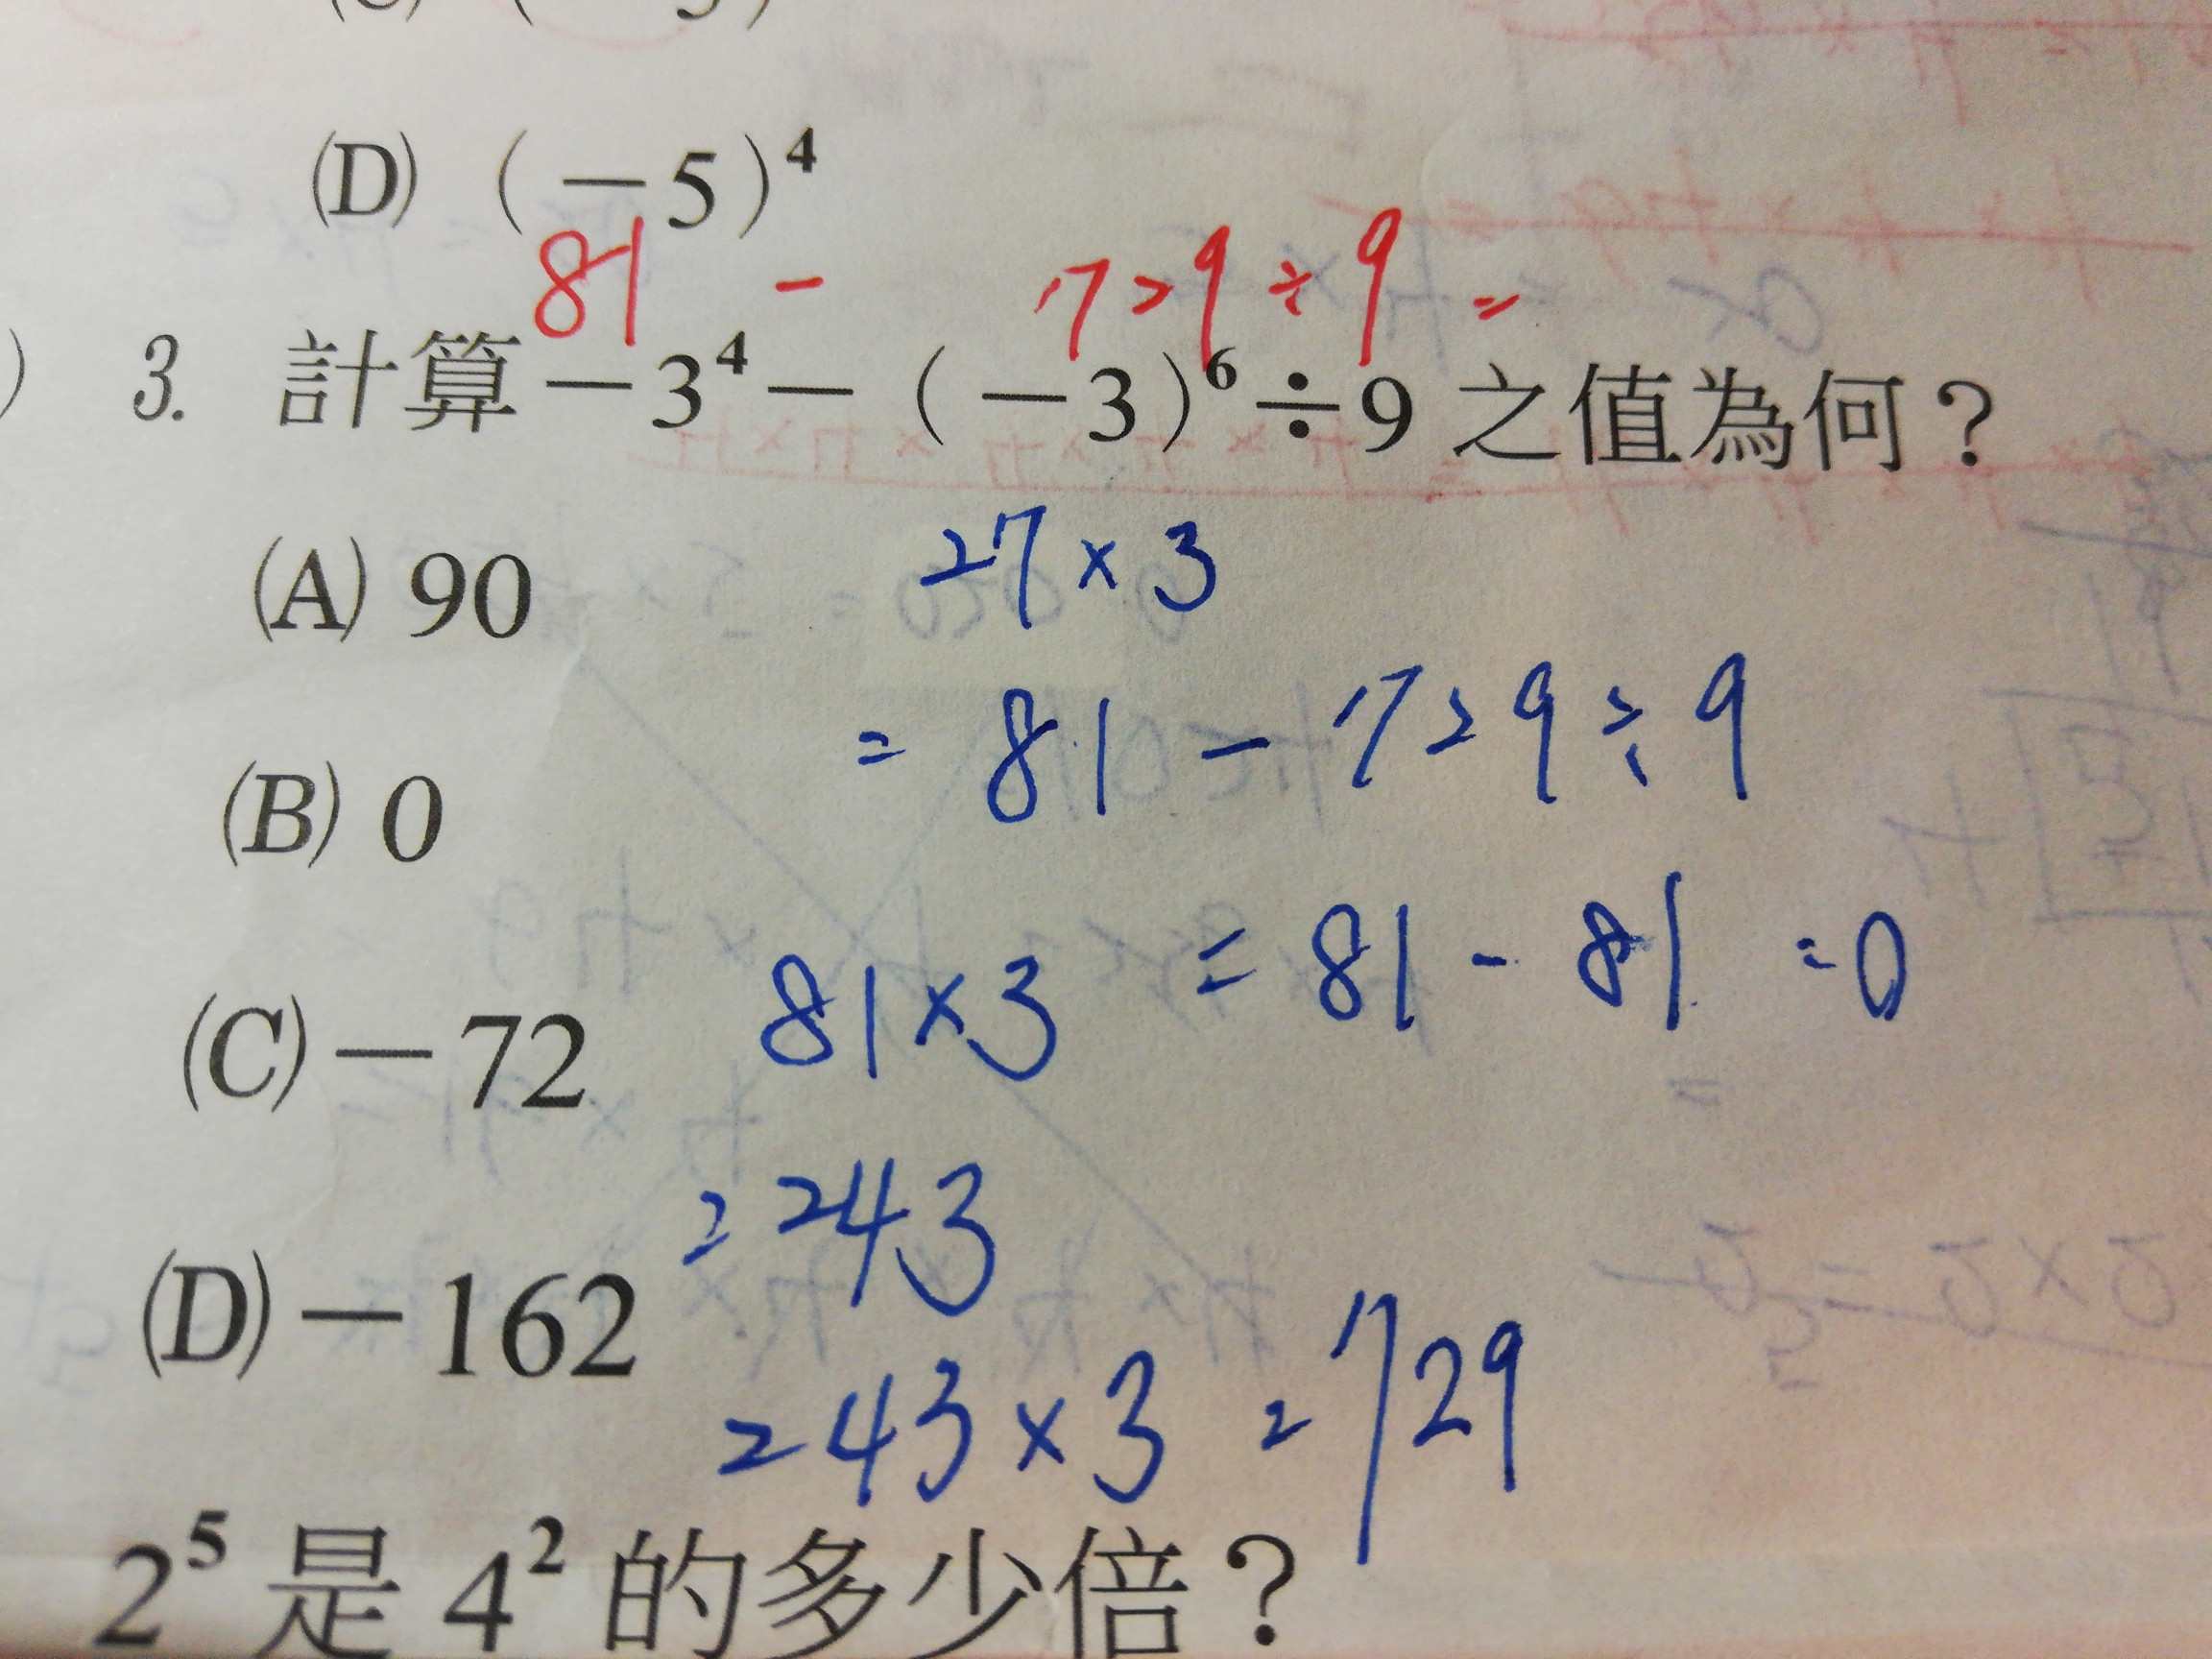 (D) (−5)⁴
81 − 729÷9=
3. 計算−3⁴−(−3)⁶÷9之值為何？
(A) 90
27×3
=81−729÷9
(B) 0
81×3 =81−81=0
(C)−72
=243
(D)−162
243×3=729
2⁵是4²的多少倍？